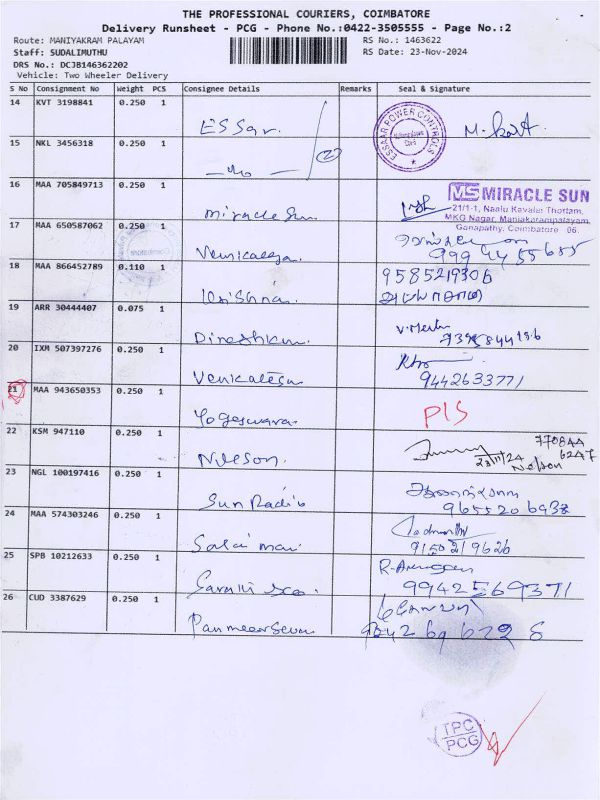 THE PROFESSIONAL COURIERS, COIMBATORE
Delivery Runsheet - PCG - Phone No.:0422-3505555 - Page No.:2
Route: MANIYAKRAM PALAYAM
RS No.: 1463622
Staff: SUDALIMUTHU
RS Date: 23-Nov-2024
DRS No.: DCJB146362202
Vehicle: Two Wheeler Delivery
S No Consignment No Weight PCS Consignee Details Remarks Seal & Signature
14 KVT 3198841 0.250 1
ESSar.
ESSAAR POWER CONTROLS
15 NKL 3456318 0.250 1
(2)
16 MAA 705849713 0.250 1
Miracle Sun.
MS MIRACLE SUN
21/1-1, Naalu Kavalai Thottam,
MKG Nagar, Maniakarampalayam,
Ganapathy, Coimbatore 06.
17 MAA 650587062 0.250 1
Venkatesa.
999 44 55 655
18 MAA 866452789 0.110 1
Krishna.
9585219306
19 ARR 30444407 0.075 1
Dineshkum.
20 IXM 507397276 0.250 1
Venkatesa
9442633771
21 MAA 943650353 0.250 1
Yogeswara.
PIS
22 KSM 947110 0.250 1
Nelson.
770844
6247
23/11/24
Nelson
23 NGL 100197416 0.250 1
Sun Radio
965520 6932
24 MAA 574303246 0.250 1
Salai mani
9150219626
25 SPB 10212633 0.250 1
9942569371
26 CUD 3387629 0.250 1
Panneerselva.
TPC
PCG